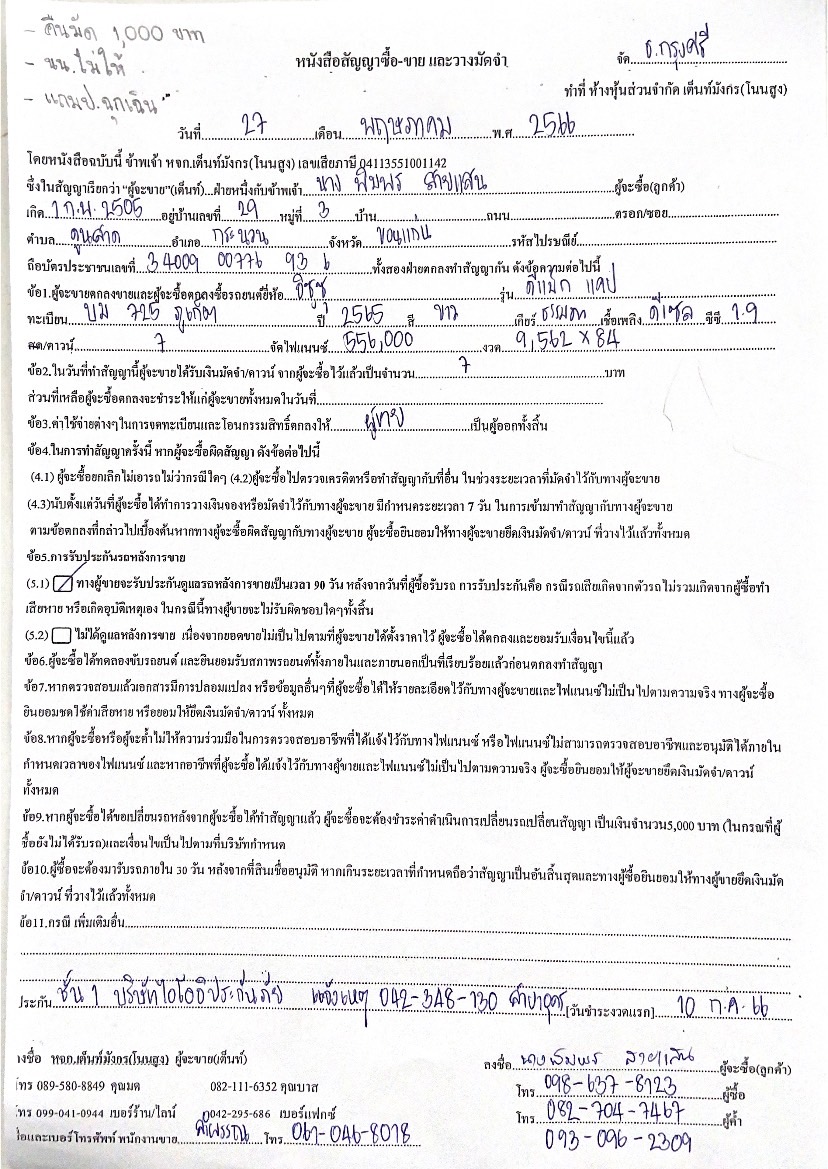 - คืนมัด 1,000 บาท
- นน.ไม่ให้
- แถมป.ฉุกเฉิน
หนังสือสัญญาซื้อ-ขาย และวางมัดจำ
จัด ธ.กรุงศรี
ทำที่ ห้างหุ้นส่วนจำกัด เต็นท์มังกร(โนนสูง)
วันที่ 27 เดือน พฤษภาคม พ.ศ 2566
โดยหนังสือฉบับนี้ ข้าพเจ้า หจก.เต็นท์มังกร(โนนสูง) เลขเสียภาษี 04113551001142
ซึ่งในสัญญาเรียกว่า "ผู้จะขาย"(เต็นท์)...ฝ่ายหนึ่งกับข้าพเจ้า นาง พิมพร สายแสน ผู้จะซื้อ(ลูกค้า)
เกิด 1 ก.พ. 2505 อยู่บ้านเลขที่ 29 หมู่ที่ 3 บ้าน ถนน ตรอก/ซอย
ตำบล ดูนสาด อำเภอ กระนวน จังหวัด ขอนแก่น รหัสไปรษณีย์
ถือบัตรประชาชนเลขที่ 34009 00776 93 6 ทั้งสองฝ่ายตกลงทำสัญญากัน ดังข้อความต่อไปนี้
ข้อ1.ผู้จะขายตกลงขายและผู้จะซื้อตกลงซื้อรถยนต์ยี่ห้อ อีซูซุ รุ่น ดีแม็ก แคป
ทะเบียน บม 725 ภูเก็ต ปี 2565 สี ขาว เกียร์ ธรรมดา เชื้อเพลิง ดีเซล ซีซี 1.9
สด/ดาวน์ 7 จัดไฟแนนซ์ 556,000 งวด 9,562 x 84
ข้อ2.ในวันที่ทำสัญญานี้ผู้จะขายได้รับเงินมัดจำ/ดาวน์ จากผู้จะซื้อไว้แล้วเป็นจำนวน 7 บาท
ส่วนที่เหลือผู้จะซื้อตกลงจะชำระให้แก่ผู้จะขายทั้งหมดในวันที่
ข้อ3.ค่าใช้จ่ายต่างๆในการจดทะเบียนและโอนกรรมสิทธิ์ตกลงให้ ผู้ขาย เป็นผู้ออกทั้งสิ้น
ข้อ4.ในการทำสัญญาครั้งนี้ หากผู้จะซื้อผิดสัญญา ดังข้อต่อไปนี้
(4.1) ผู้จะซื้อยกเลิกไม่เอารถไม่ว่ากรณีใดๆ (4.2)ผู้จะซื้อไปตรวจเครดิตหรือทำสัญญากับที่อื่น ในช่วงระยะเวลาที่มัดจำไว้กับทางผู้จะขาย
(4.3)นับตั้งแต่วันที่ผู้จะซื้อได้ทำการวางเงินจองหรือมัดจำไว้กับทางผู้จะขาย มีกำหนดระยะเวลา 7 วัน ในการเข้ามาทำสัญญากับทางผู้จะขาย
ตามข้อตกลงที่กล่าวไปเบื้องต้นหากทางผู้จะซื้อผิดสัญญากับทางผู้จะขาย ผู้จะซื้อยินยอมให้ทางผู้จะขายยึดเงินมัดจำ/ดาวน์ ที่วางไว้แล้วทั้งหมด
ข้อ5.การรับประกันรถหลังการขาย
(5.1) ทางผู้ขายจะรับประกันดูแลรถหลังการขายเป็นเวลา 90 วัน หลังจากวันที่ผู้ซื้อรับรถ การรับประกันคือ กรณีรถเสียเกิดจากตัวรถ ไม่รวมเกิดจากผู้ซื้อทำ
เสียหาย หรือเกิดอุบัติเหตุเอง ในกรณีนี้ทางผู้ขายจะไม่รับผิดชอบใดๆทั้งสิ้น
(5.2) ไม่ได้ดูแลหลังการขาย เนื่องจากยอดขายไม่เป็นไปตามที่ผู้จะขายได้ตั้งราคาไว้ ผู้จะซื้อได้ตกลงและยอมรับเงื่อนไขนี้แล้ว
ข้อ6.ผู้จะซื้อได้ทดลองขับรถยนต์ และยินยอมรับสภาพรถยนต์ทั้งภายในและภายนอกเป็นที่เรียบร้อยแล้วก่อนตกลงทำสัญญา
ข้อ7.หากตรวจสอบแล้วเอกสารมีการปลอมแปลง หรือข้อมูลอื่นๆที่ผู้จะซื้อได้ให้รายละเอียดไว้กับทางผู้จะขายและไฟแนนซ์ไม่เป็นไปตามความจริง ทางผู้จะซื้อ
ยินยอมชดใช้ค่าเสียหาย หรือยอมให้ยึดเงินมัดจำ/ดาวน์ ทั้งหมด
ข้อ8.หากผู้จะซื้อหรือผู้จะค้ำไม่ให้ความร่วมมือในการตรวจสอบอาชีพที่ได้แจ้งไว้กับทางไฟแนนซ์ หรือไฟแนนซ์ไม่สามารถตรวจสอบอาชีพและอนุมัติได้ภายใน
กำหนดเวลาของไฟแนนซ์ และหากอาชีพที่ผู้จะซื้อได้แจ้งไว้กับทางผู้ขายและไฟแนนซ์ไม่เป็นไปตามความจริง ผู้จะซื้อยินยอมให้ผู้จะขายยึดเงินมัดจำ/ดาวน์
ทั้งหมด
ข้อ9.หากผู้จะซื้อได้ขอเปลี่ยนรถหลังจากผู้จะซื้อได้ทำสัญญาแล้ว ผู้จะซื้อจะต้องชำระค่าดำเนินการเปลี่ยนรถเปลี่ยนสัญญา เป็นเงินจำนวน5,000 บาท (ในกรณที่ผู้
ซื้อยังไม่ได้รับรถ)และเงื่อนไขเป็นไปตามที่บริษัทกำหนด
ข้อ10.ผู้ซื้อจะต้องมารับรถภายใน 30 วัน หลังจากที่สินเชื่ออนุมัติ หากเกินระยะเวลาที่กำหนดถือว่าสัญญาเป็นอันสิ้นสุดและทางผู้ซื้อยินยอมให้ทางผู้ขายยึดเงินมัด
จำ/ดาวน์ ที่วางไว้แล้วทั้งหมด
ข้อ11.กรณี เพิ่มเติมอื่น
ประกัน ชั้น 1 บริษัทไอโออิประกันภัย แจ้งเหตุ 042-348-130 สาขาอุดร [วันชำระงวดแรก] 10 ก.ค. 66
งชื่อ หจก.เต็นท์มังกร(โนนสูง) ผู้จะขาย(เต็นท์)
ลงชื่อ นางพิมพร สายแสน ผู้จะซื้อ(ลูกค้า)
โทร 089-580-8849 คุณมด 082-111-6352 คุณบาส
โทร 098-637-8123 ผู้ซื้อ
โทร 099-041-0944 เบอร์ร้าน/ไลน์ 0042-295-686 เบอร์แฟกซ์
โทร 082-704-7467 ผู้ค้ำ
อและเบอร์โทรศัพท์ พนักงานขาย โทร 061-046-8018
093-096-2309